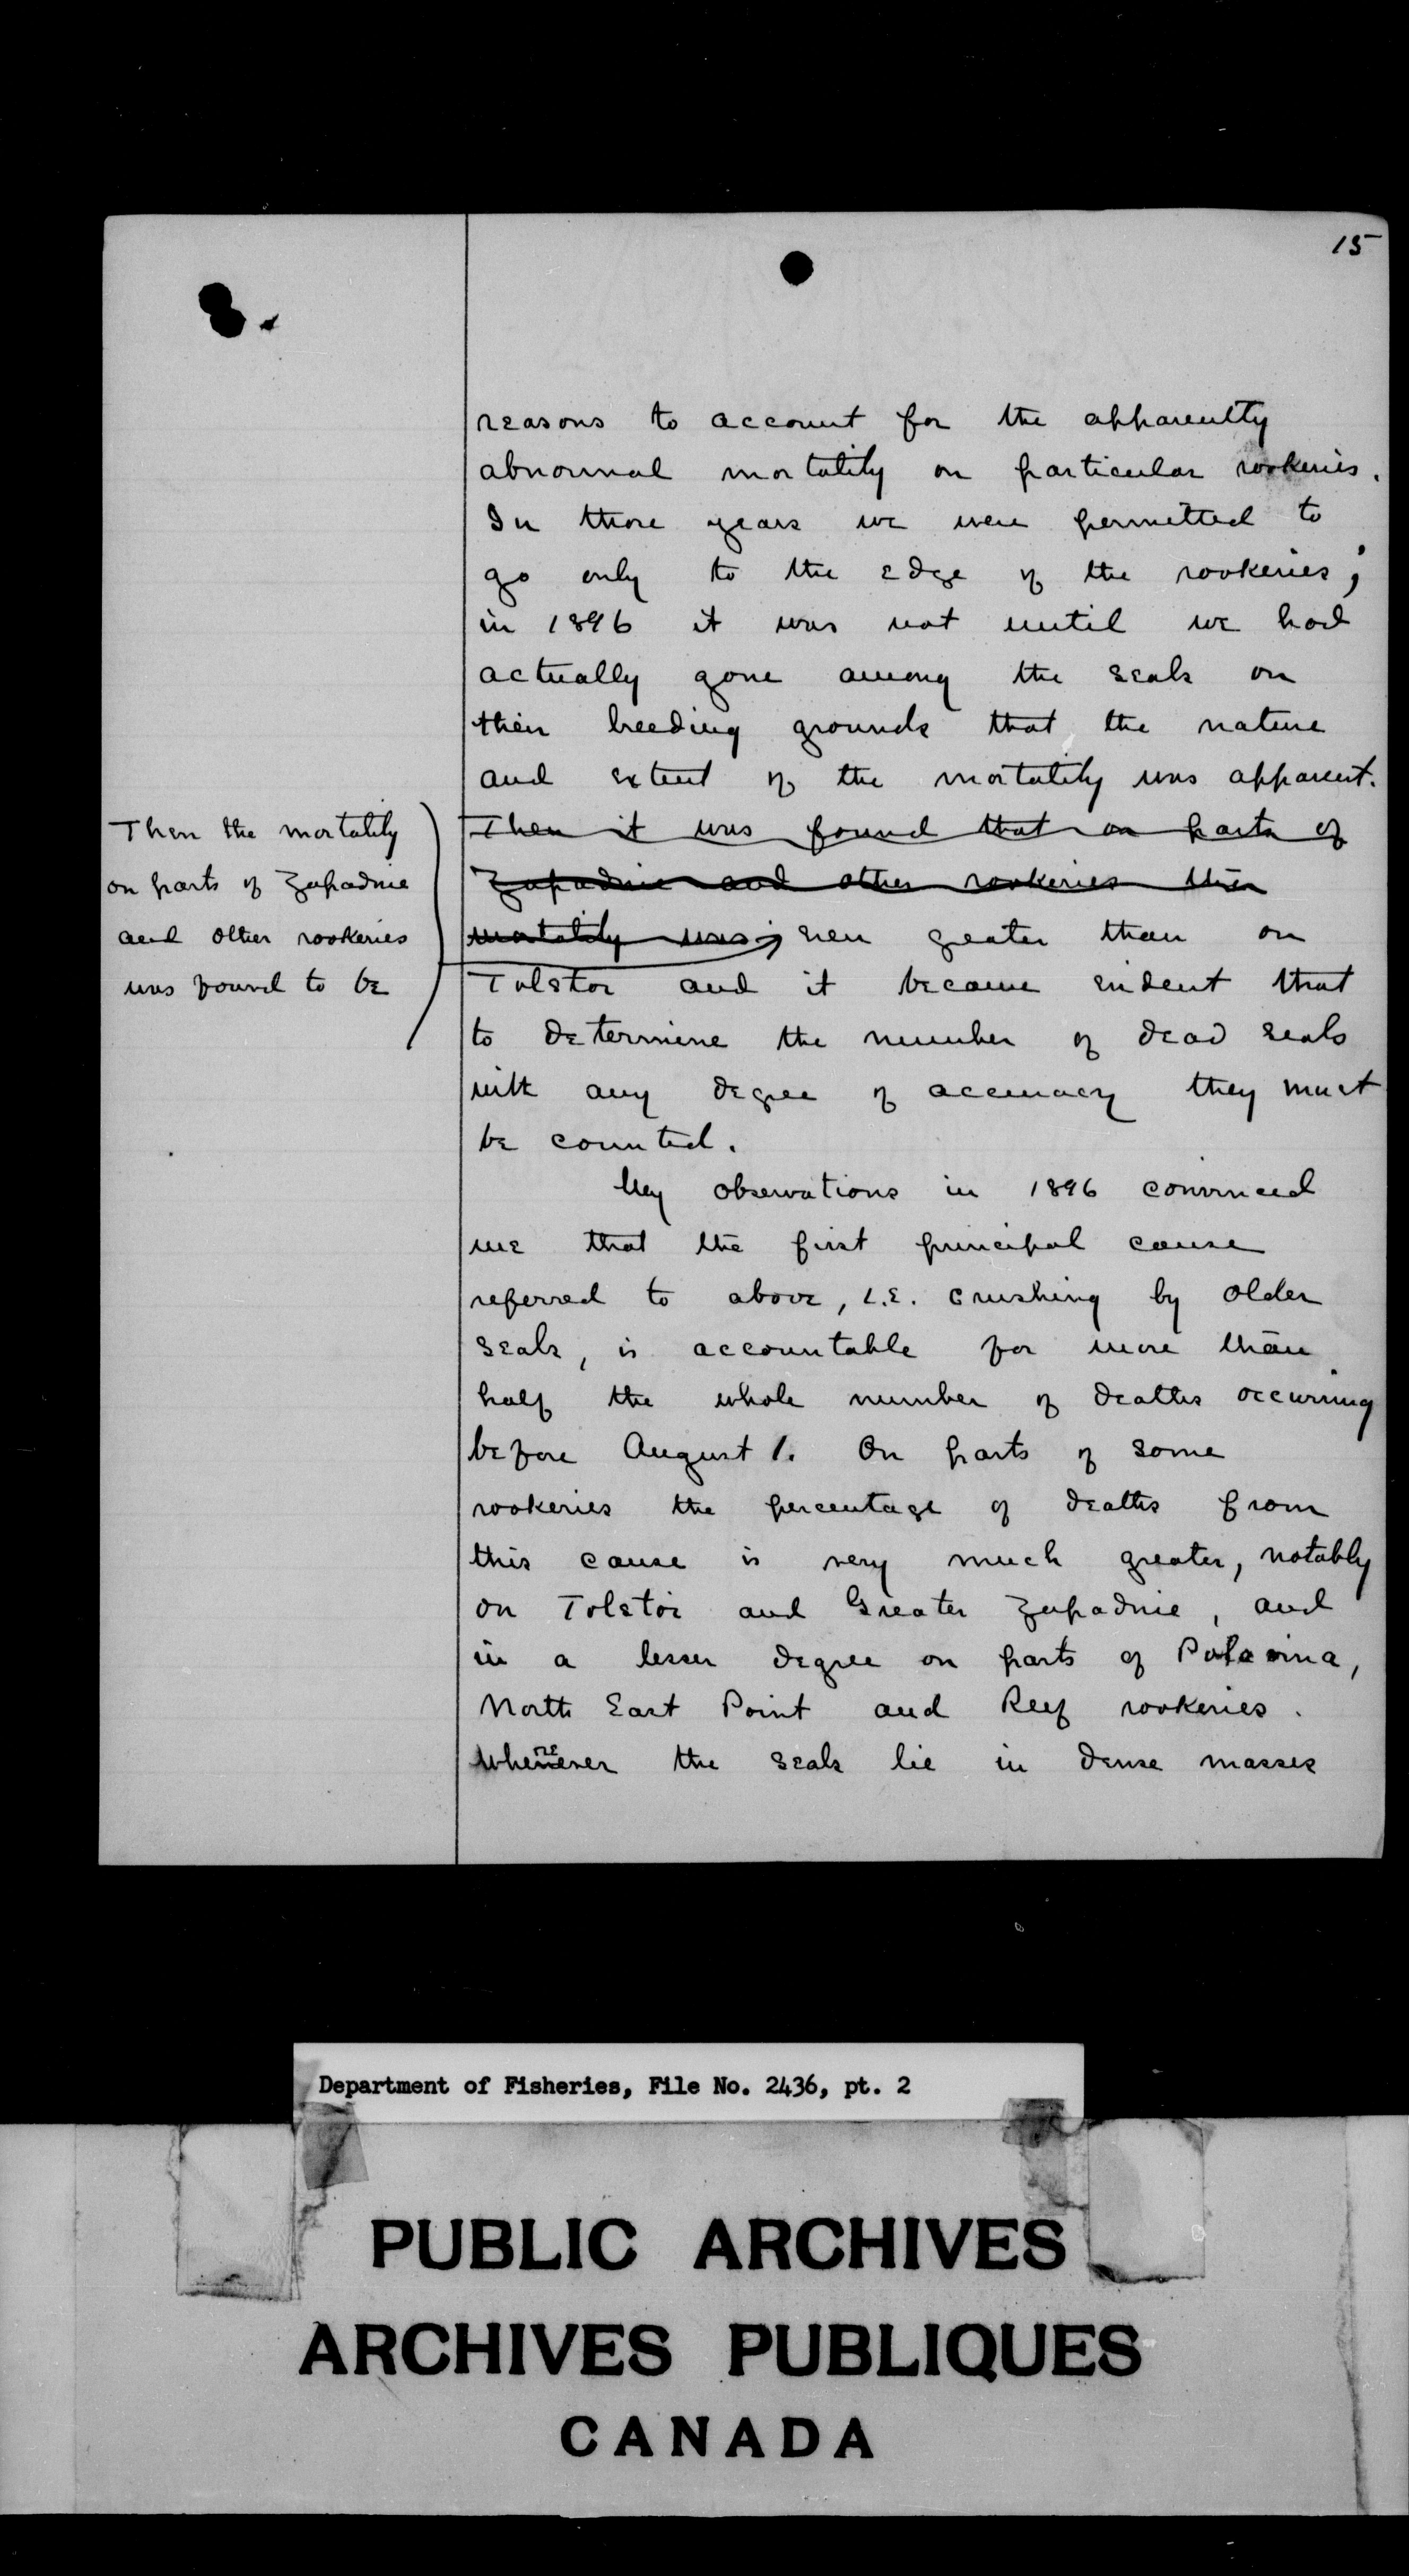 15
reasons to account for the apparently
abnormal mortality on particular rookeries.
In those years we were permitted to
go only to the edge of the rookeries;
in 1896 it was not until we had
actually gone among the seals on
their breeding grounds that the nature
and extent of the mortality was apparent.
Then the mortality
on parts of Zapadnie
and other rookeries
was found to be
Then it was found that on parts of
Zapadnie and other rookeries the
mortality was even greater than on
Tolstoi and it became evident that
to determine the number of dead seals
with any degree of accuracy they must
be counted.
My observations in 1896 convinced
me that the first principal cause
referred to above, i.e. crushing by older
seals, is accountable for more than
half the whole number of deaths occurring
before August 1. On parts of some
rookeries the percentage of deaths from
this cause is very much greater, notably
on Tolstoi and Greater Zapadnie, and
in a lesser degree on parts of Polovina,
North East Point and Reef rookeries.
Whenever the seals lie in dense masses
re
Department of Fisheries, File No. 2436, pt. 2
PUBLIC ARCHIVES
ARCHIVES PUBLIQUES
CANADA